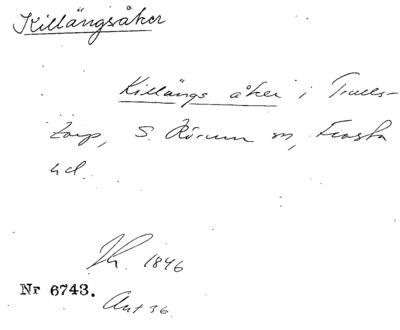 Killängsåker
Killängs åker i Trulls-
torp, S. Rörum sn, Frosta
hd.
1846
Nr 6743.
Ant 36.